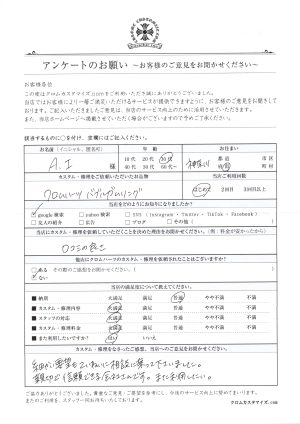 アンケートのお願い ～お客様のご意見をお聞かせください～
お客様各位
この度はクロムカスタマイズ.comをご利用いただき誠にありがとうございました。
当店ではお客様により一層ご満足いただけるサービスが提供できますように、お客様のご意見をお聞きして
おります。ご記入いただきましたご意見は、当店のサービス向上のために活用させていただきます。
また、当店ホームページに掲載させていただく場合がございますので予めご了承ください。
該当するものに○を付け、空欄にはご記入ください。
お名前（イニシャル、匿名可） 年齢 お住まい
A.I 様
10代 20代 30代
40代 50代 60代～
神奈川 都道府県 市区町村
カスタム・修理をご依頼いただいたお品物 当店ご利用回数
クロムハーツ
はじめて 2回目 3回目以上
当店をどのようにお知りになりましたか？
google検索 yahoo検索 SNS（Instagram・Twitter・TikTok・Facebook）
友人の紹介 広告 ブログ その他（ ）
当店にカスタム・修理を依頼していただくことを決めた理由をお聞かせください。（例：料金が安かったから）
口コミの良さ
他店にクロムハーツのカスタム・修理を依頼されたことはございますか？
ある その際のご感想をお聞かせください。
ない
当店の満足度について教えてください。
■納期 大満足 満足 普通 やや不満 不満
■カスタム・修理内容 大満足 満足 普通 やや不満 不満
■スタッフの対応 大満足 満足 普通 やや不満 不満
■カスタム・修理料金 大満足 満足 普通 やや不満 不満
■また利用したいですか？ はい いいえ
カスタム・修理をなさったご感想、当店へのご意見をお聞かせください。
細かい要望もていねいに相談に乗って下さいました。
親切で信頼できるお店さんです。また利用したい。
ご協力ありがとうございました。貴重なご意見・ご要望を参考にし、今後のサービス向上に努めてまいります。
またのご利用を、スタッフ一同お待ちいたしております。
クロムカスタマイズ.com